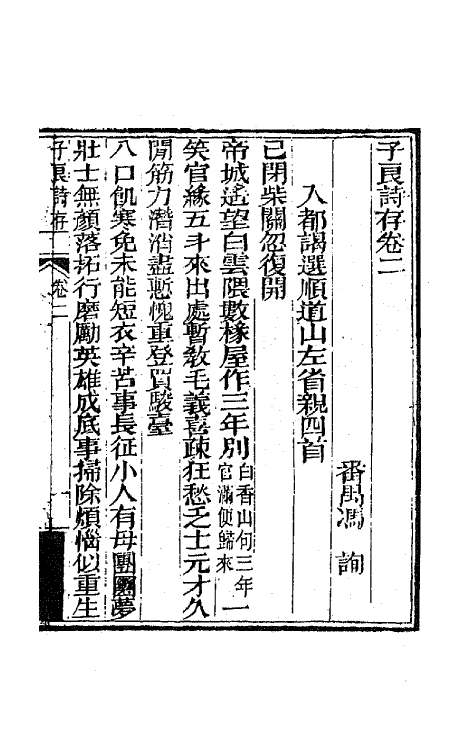 子良詩存卷二
番禺馮　詢
入都謁選順道山左省親四首
已閉柴關忽復開
帝城遙望白雲隈數椽屋作三年別白香山句三年官滿便歸來一
笑官緣五斗來出處暫教毛義喜疎狂愁乏士元才久
閒筋力潛消盡慙愧重登買駿臺
八口飢寒免未能短衣辛苦事長征小人有母團圞夢
壯士無顏落拓行磨勵英雄成底事掃除煩惱似重生
子良詩存　卷二　一